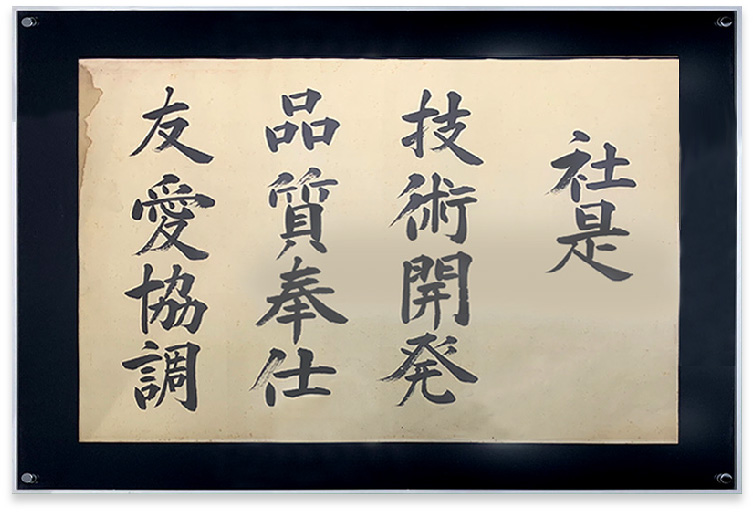 社是
技術開発
品質奉仕
友愛協調